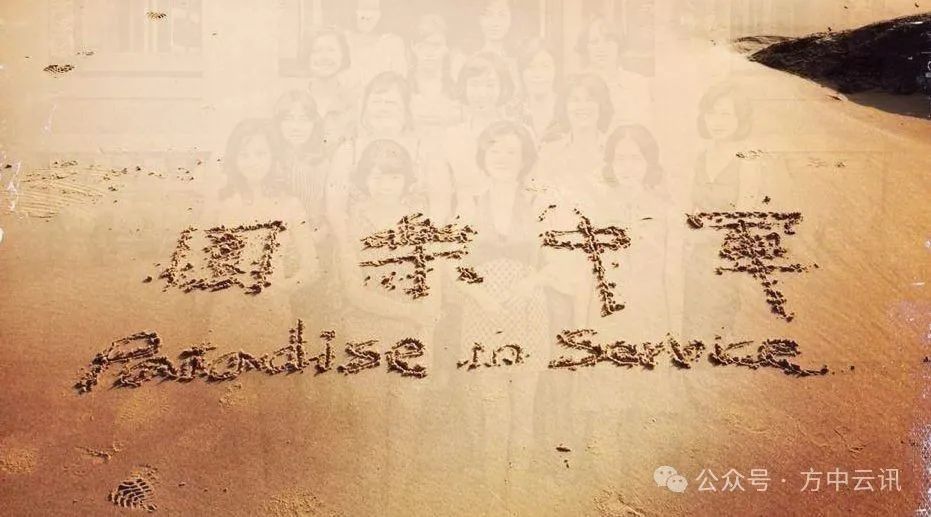 軍中樂園
Paradise in Service
公众号 · 方中云讯